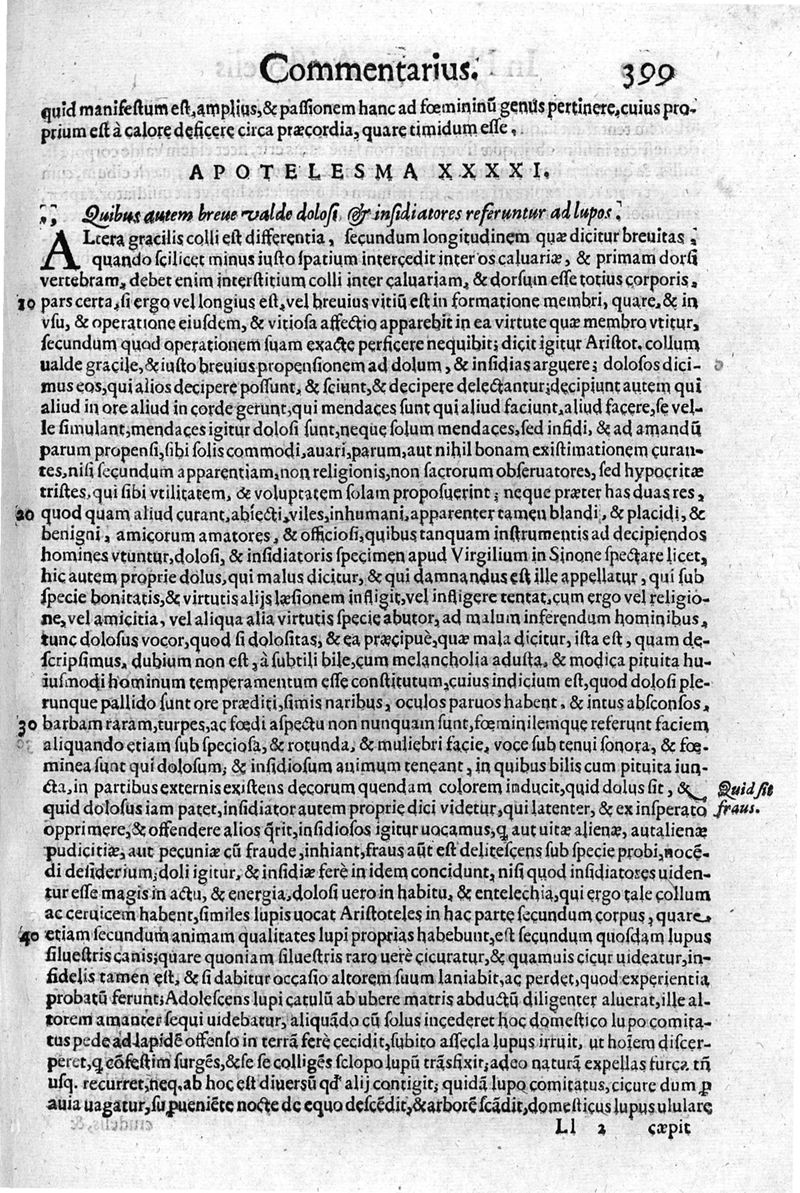 Commentarius. 399
quid manifestum est, amplius, & passionem hanc ad fœmininũ genus pertinere, cuius pro-
prium est à calore deficere circa præcordia, quare timidum esse.
APOTELESMA XXXXI.
Quibus autem breue valde dolosi, & insidiatores referuntur ad lupos.
ALtera gracilis colli est differentia, secundum longitudinem quæ dicitur breuitas,
quando scilicet minus iusto spatium intercedit inter os caluariæ, & primam dorsi
vertebram, debet enim interstitium colli inter caluariam, & dorsum esse totius corporis,
10 pars certa, si ergo vel longius est, vel breuius vitiũ est in formatione membri, quare, & in
vsu, & operatione eiusdem, & vitiosa affectio apparebit in ea virtute quæ membro vtitur,
secundum quod operationem suam exacte perficere nequibit; dicit igitur Aristot. collum
ualde gracile, & iusto breuius propensionem ad dolum, & insidias arguere; dolosos dici-
mus eos, qui alios decipere possunt, & sciunt, & decipere delectantur; decipiunt autem qui
aliud in ore aliud in corde gerunt, qui mendaces sunt qui aliud faciunt, aliud facere, se vel-
le simulant, mendaces igitur dolosi sunt, neque solum mendaces, sed infidi, & ad amandũ
parum propensi, sibi solis commodi, auari, parum, aut nihil bonam existimationem curan-
tes, nisi secundum apparentiam, non religionis, non sacrorum obseruatores, sed hypocritæ
tristes, qui sibi vtilitatem, & voluptatem solam proposuerint; neque præter has duas res,
20 quod quam aliud curant, abiecti, viles, inhumani, apparenter tamen blandi, & placidi, &
benigni, amicorum amatores, & officiosi, quibus tanquam instrumentis ad decipiendos
homines vtuntur, dolosi, & insidiatoris specimen apud Virgilium in Sinone spectare licet,
hic autem proprie dolus, qui malus dicitur, & qui damnandus est ille appellatur, qui sub
specie bonitatis, & virtutis alijs læsionem infligit, vel infligere tentat, cum ergo vel religio-
ne, vel amicitia, vel aliqua alia virtutis specie abutor, ad malum inferendum hominibus,
tunc dolosus vocor, quod si dolositas, & ea præcipuè, quæ mala dicitur, ista est, quam de-
scripsimus, dubium non est, à subtili bile, cum melancholia adusta, & modica pituita hu-
iusmodi hominum temperamentum esse constitutum, cuius indicium est, quod dolosi ple-
runque pallido sunt ore præditi, simis naribus, oculos paruos habent, & intus absconsos,
30 barbam raram, turpes, ac fœdi aspectu non nunquam sunt, fœminilemque referunt faciem
aliquando etiam sub speciosa, & rotunda, & muliebri facie, voce sub tenui sonora, & fœ-
minea sunt qui dolosum, & insidiosum animum teneant, in quibus bilis cum pituita iun-
cta, in partibus externis existens decorum quendam colorem inducit, quid dolus sit, & Quid sit
quid dolosus iam patet, insidiator autem proprie dici videtur, qui latenter, & ex insperato fraus.
opprimere, & offendere alios q̃rit, insidiosos igitur uocamus, q aut uitæ alienæ, aut alienæ
pudicitiæ, aut pecuniæ cũ fraude, inhiant, fraus aũt est delitescens sub specie probi, nocẽ-
di desiderium; doli igitur, & insidiæ ferè in idem concidunt, nisi quod insidiatores uiden-
tur esse magis in actu, & energia, dolosi uero in habitu, & entelechia, qui ergo tale collum
ac ceruicem habent, similes lupis uocat Aristoteles in hac parte secundum corpus, quare
40 etiam secundum animam qualitates lupi proprias habebunt, est secundum quosdam lupus
siluestris canis; quare quoniam siluestris raro uerè cicuratur, & quamuis cicur uideatur, in-
fidelis tamen est, & si dabitur occasio altorem suum laniabit, ac perdet, quod experientia
probatũ ferunt; Adolescens lupi catulũ ab ubere matris abductũ diligenter aluerat, ille al-
torem amanter sequi uidebatur, aliquãdo cũ solus incederet hoc domestico lupo comita-
tus pede ad lapidẽ offenso in terrã ferè cecidit, subito assecla lupus irruit, ut hoĩem discer-
peret, q cõfestim surgẽs, & se se colligẽs sclopo lupũ trãsfixit; adeo naturã expellas furca tñ
usq. recurret, neq. ab hoc est diuersũ qđ alij contigit; quidã lupo comitatus, cicure dum ꝑ
auia uagatur, superueniẽte nocte de equo descẽdit, & arborẽ scãdit, domesticus lupus ululare
Ll 2 cæpit